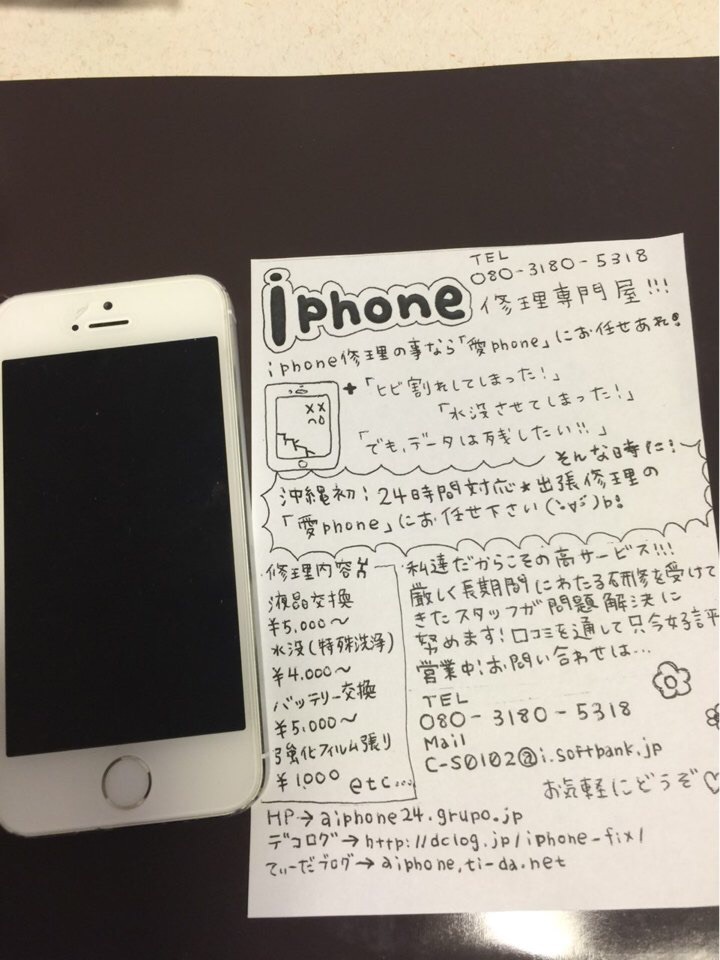 TEL
080-3180-5318
iphone 修理専門屋!!!
iphone修理の事なら「愛phone」にお任せあれ!
+「ヒビ割れしてしまった!」
「水没させてしまった!」
「でも、データは残したい!!」
そんな時に!
沖縄初!24時間対応★出張修理の
「愛phone」にお任せ下さい(*´∀`)b!
修理内容
液晶交換
¥5,000〜
水没(特殊洗浄)
¥4,000〜
バッテリー交換
¥5,000〜
強化フィルム張り
¥1,000 etc...
私達だからこその高サービス!!!
厳しく長期間にわたる研修を受けて
きたスタッフが問題解決に
努めます!口コミを通して只今好評
営業中!お問い合わせは...
TEL
080-3180-5318
Mail
C-S0102@i.softbank.jp
お気軽にどうぞ♡
HP→aiphone24.grupo.jp
デコログ→http://dclog.jp/iphone-fix/
てぃーだブログ→aiphone.ti-da.net